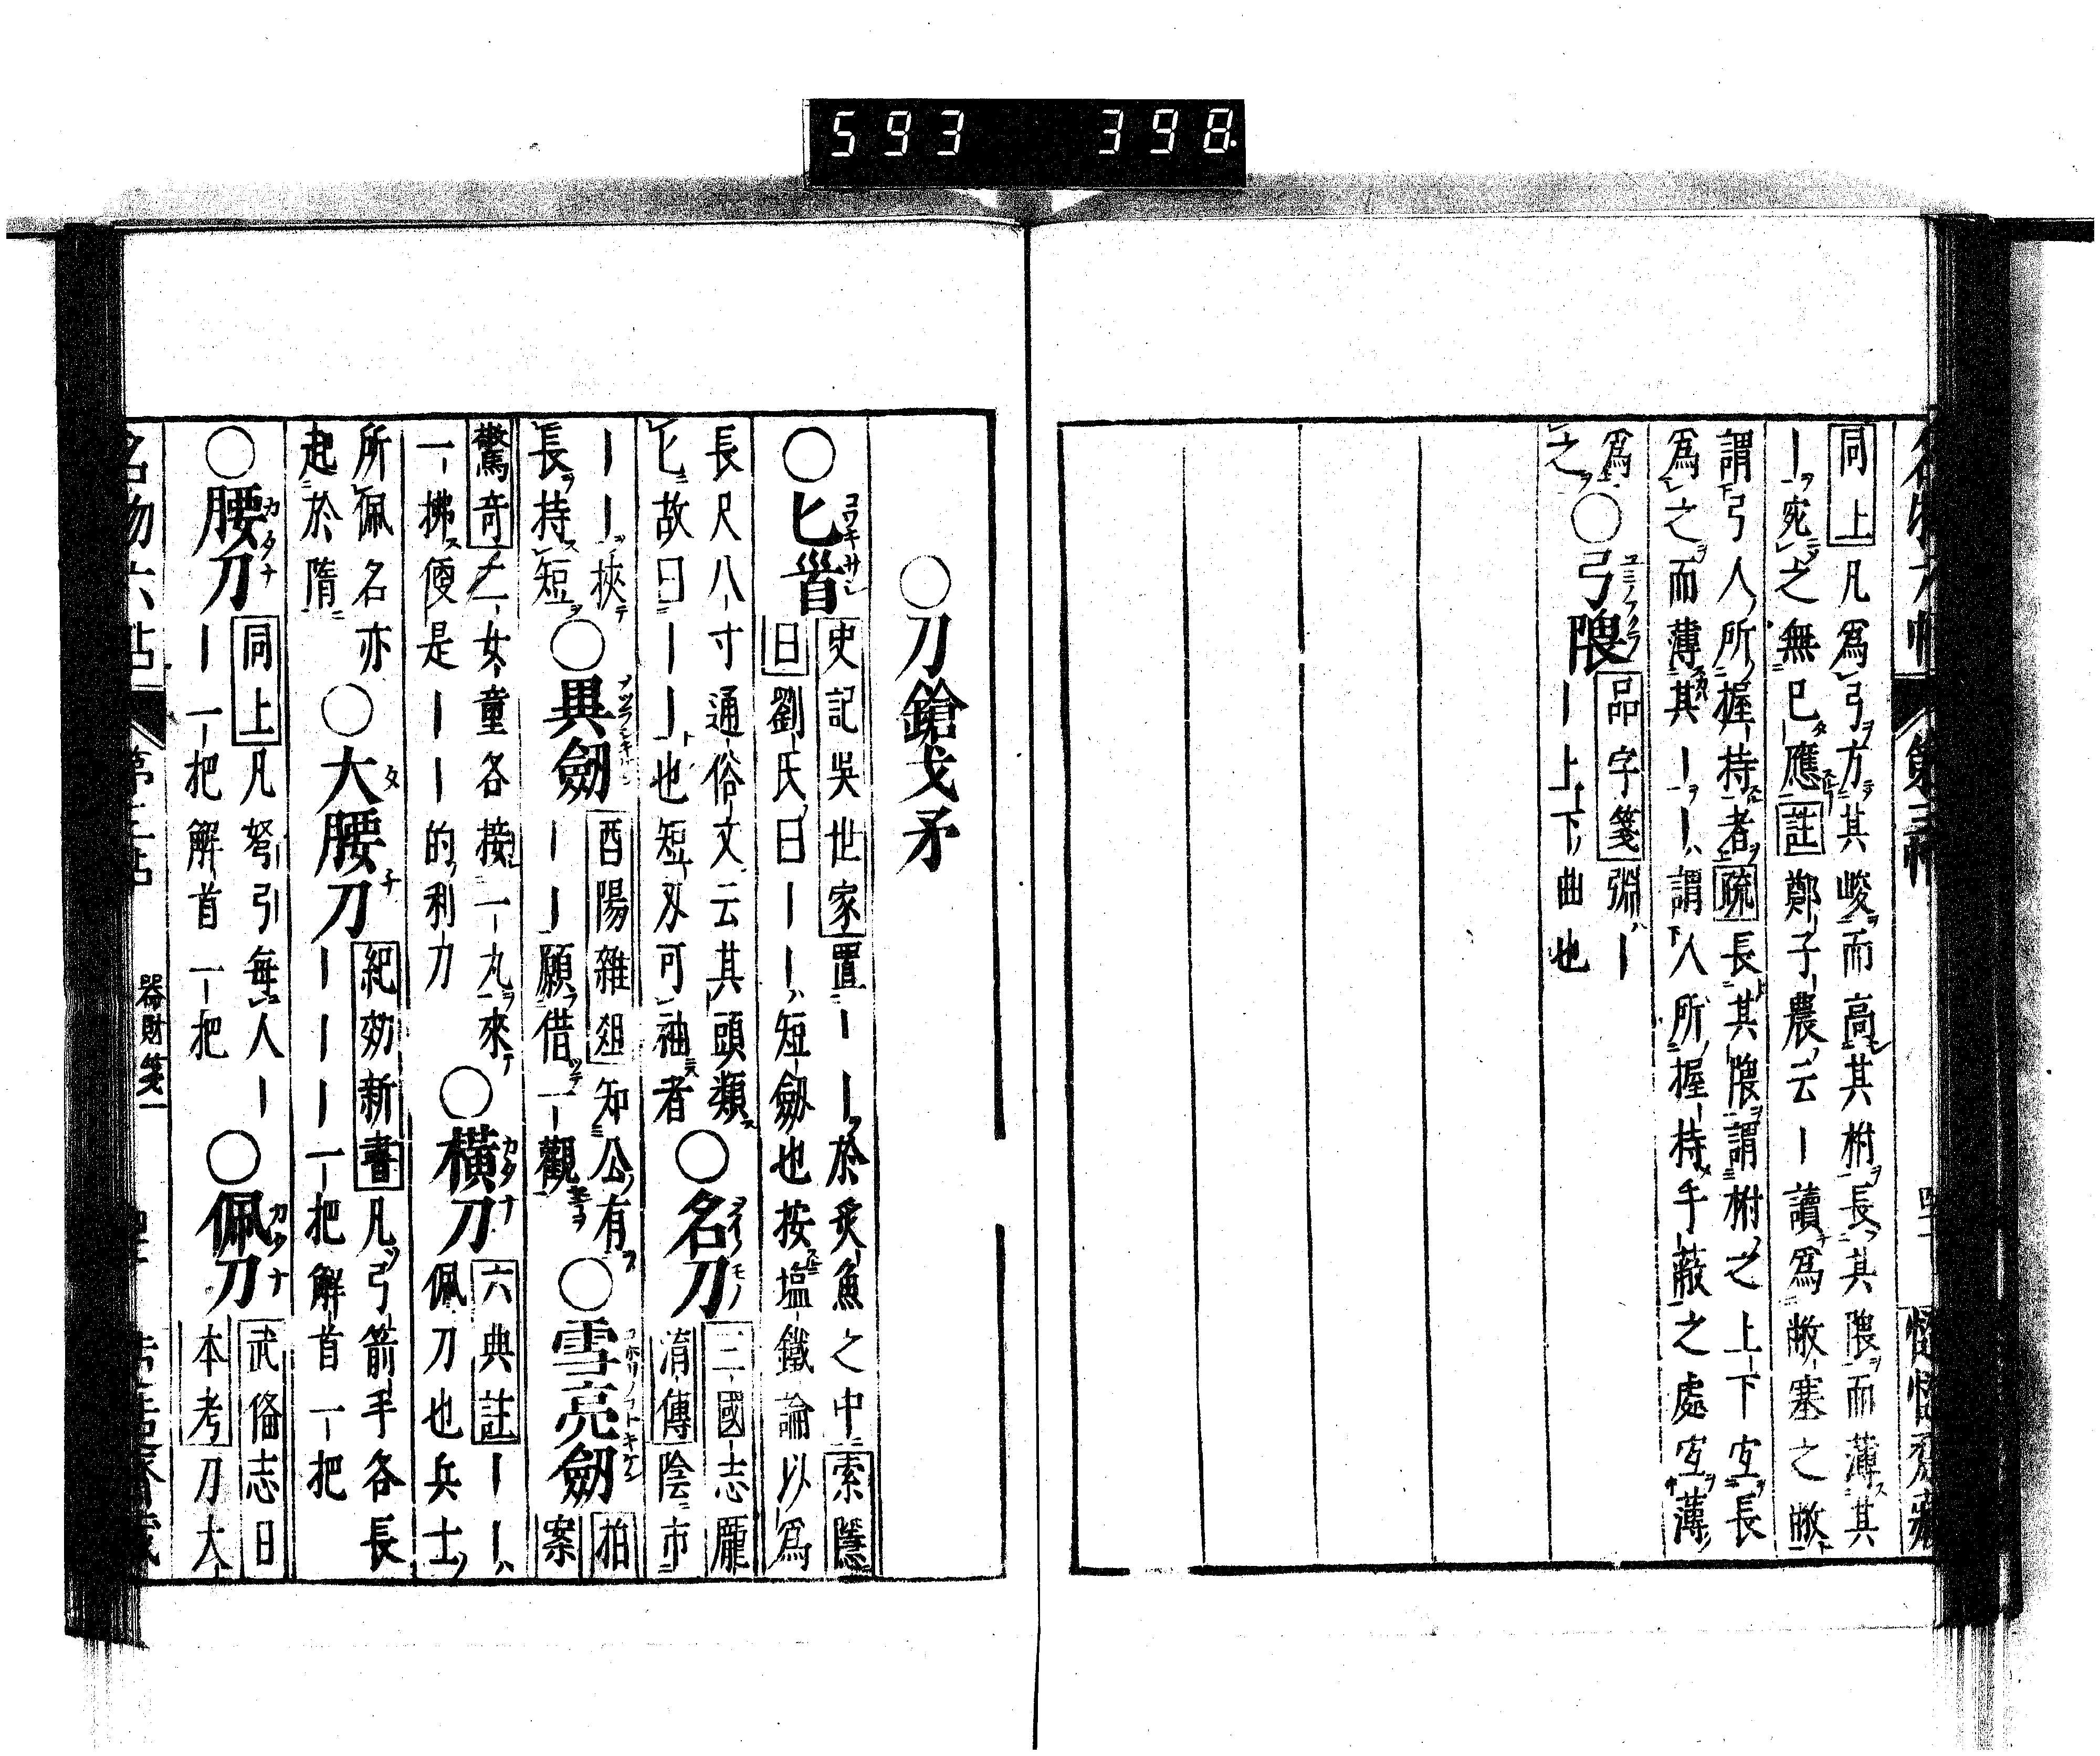 593 398
同上凡爲弓方其峻而高其柎長其隈而薄其
｜宛之無已應註鄭子農云｜讀爲敝塞之敝
謂弓人所握持者疏長其隈謂柎之上下宜長
爲之而薄其｜｜謂人所握持手蔽之處宜薄
爲之
○弓隈 ユミノフクラ
品字箋淵｜
｜上下曲也
○刀鎗戈矛
○匕首
史記吳世家置｜｜於炙魚之中索隱
曰劉氏曰｜｜短劒也按塩鐵論以爲
長尺八寸通俗文云其頭類
匕故曰｜｜也短刄可袖者
○名刀
三國志龎
淯傳陰市
｜｜挾
長持短
○異劒
酉陽雜俎知公有
｜｜願借一觀
○雪亮劒
拍案
驚奇十一女童各接一丸來
一拂便是｜｜的利刀
○橫刀 カタナ
六典註｜｜
佩刀也兵士
所佩名亦
起於隋
○大腰刀
紀効新書凡弓箭手各長
｜｜｜一把解首一把
○腰刀 カタナ
同上凡弩引無人｜
｜一把解首一把
○佩刀 カタナ
武俻志日
本考刀大
器財箋一